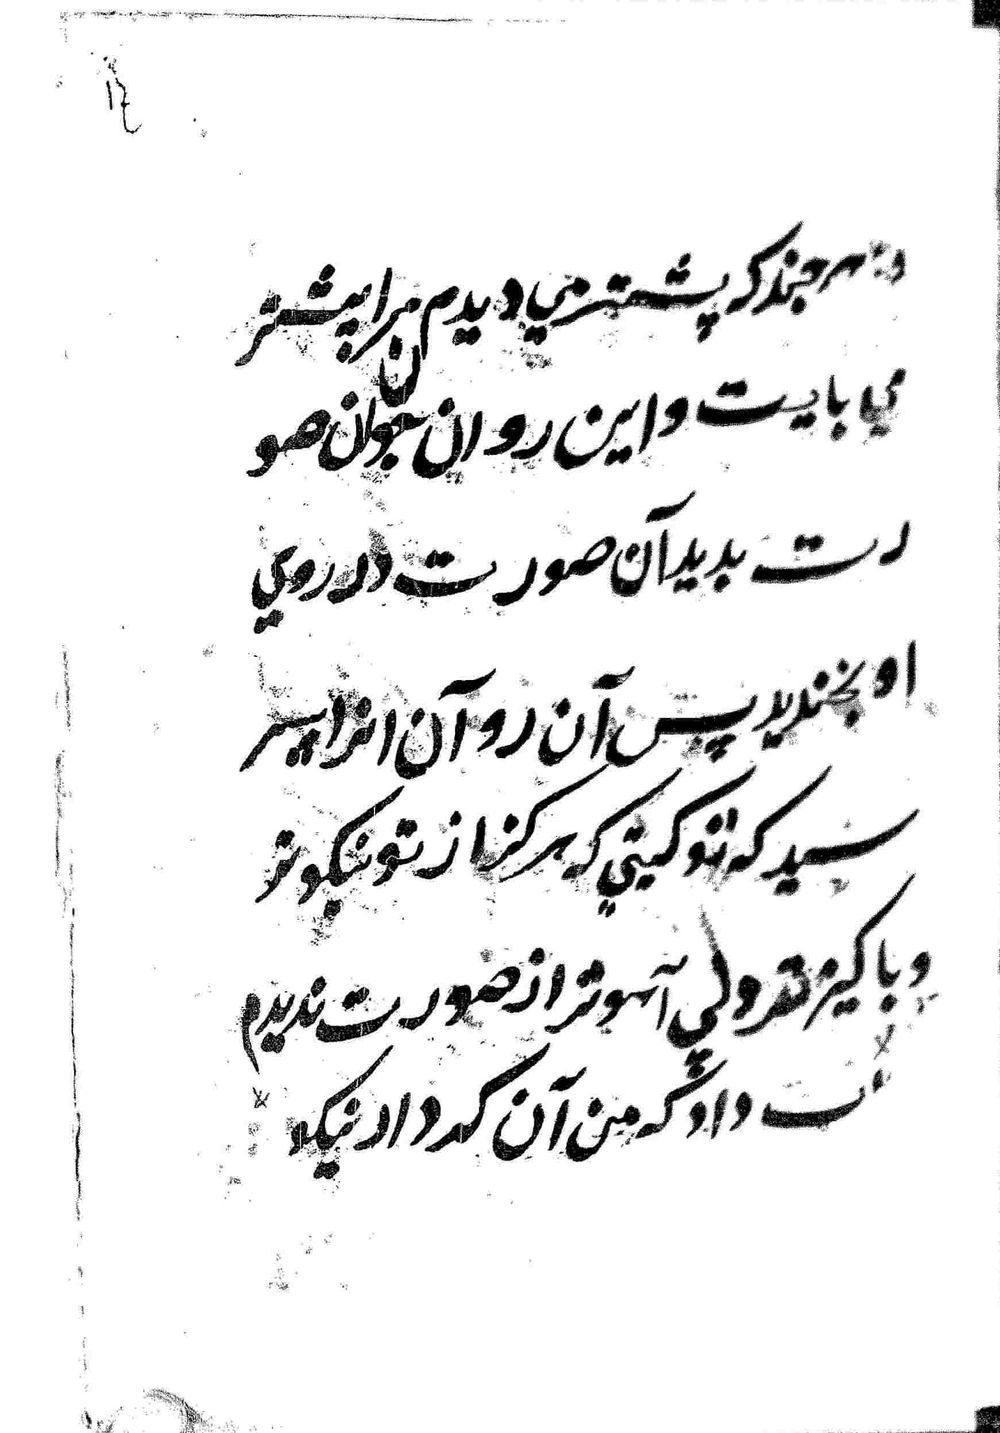 ۱۶
و هر جند که پشتر می دیدم مرا پیشتر
می بایست و این روان جون آن صو
رت بدید آن صورت در روی
او بخندید پس آن روآن انرا پر
سید که تو کیتی که هر کز از تو نیکوتر
و پاکیزه تر ولی آهوتر از صورت ندیدم
داد که من آن کرداد نیکو